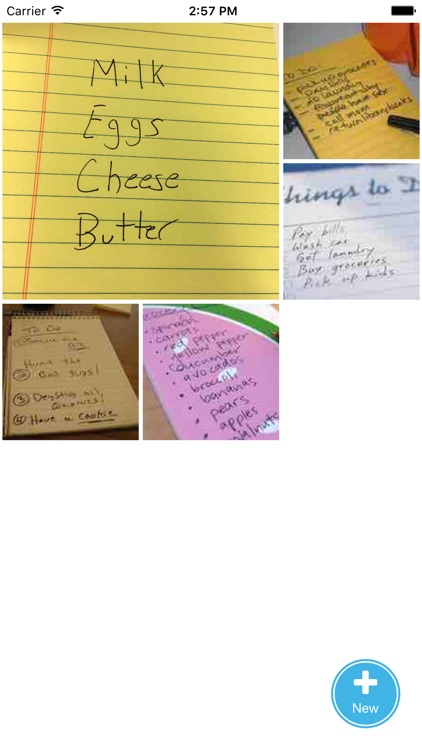 Carrier 2:57 PM
Milk
Eggs
Cheese
Butter
TO DO:
- pick up groceries
- pay bills
- do laundry
- call mom
- return library books
Things to D
Pay bills
Wash car
Get laundry
Buy groceries
Pick up kids
To Do
Hunt the
② Bad guys!
③ Destroy all
④ Have a cookie
• spinach
• carrots
• red pepper
• yellow pepper
• cucumber
• avocados
• broccoli
• bananas
• pears
• apples
• walnuts
New